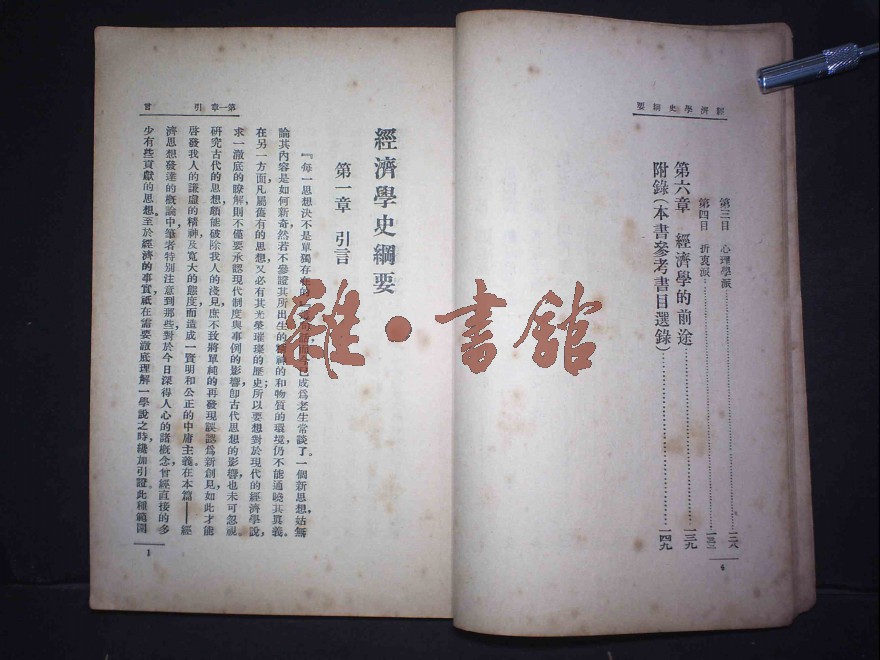 經濟學史綱要
第三目 心理學派……一二八
第四目 折衷派……一三三
第六章 經濟學的前途……一三九
附錄(本書參考書目選錄)……一四九
4
第一章 引言
經濟學史綱要
第一章 引言
『每一思想決不是單獨存在的 已成爲老生常談了。一個新思想,姑無
論其內容是如何新奇,然若不參證其所出生的精神的和物質的環境,仍不能通曉其眞義。
在另一方面,凡屬舊有的思想,又必有其光榮璀璨的歷史;所以要想對於現代的經濟學說,
求一澈底的瞭解,則不僅要承認現代制度與事例的影響,卽古代思想的影響,也未可忽視。
研究古代的思想,頗能破除我人的淺見,庶不致將單純的再發現誤認爲新創見,如此才能
啓發我人的謙虛的精神及寬大的態度,而造成一賢明和公正的中庸主義。在本篇——經
濟思想發達的概論中,筆者特別注意到那些對於今日深得人心的諸概念,曾經直接的多
少有些貢獻的思想。至於經濟的事實,祇在需要澈底理解一學說之時,纔加引證。此種範圍
1
雜·書館